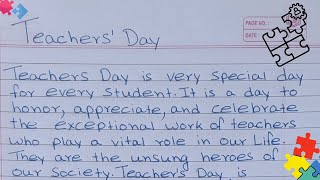 PAGE NO.:
DATE
Teachers' Day
Teachers Day is very special day
for every student. It is a day to
honor, appreciate, and celebrate
the exceptional work of teachers
who play a vital role in our Life.
They are the unsung heroes of
our society. Teacher's Day is